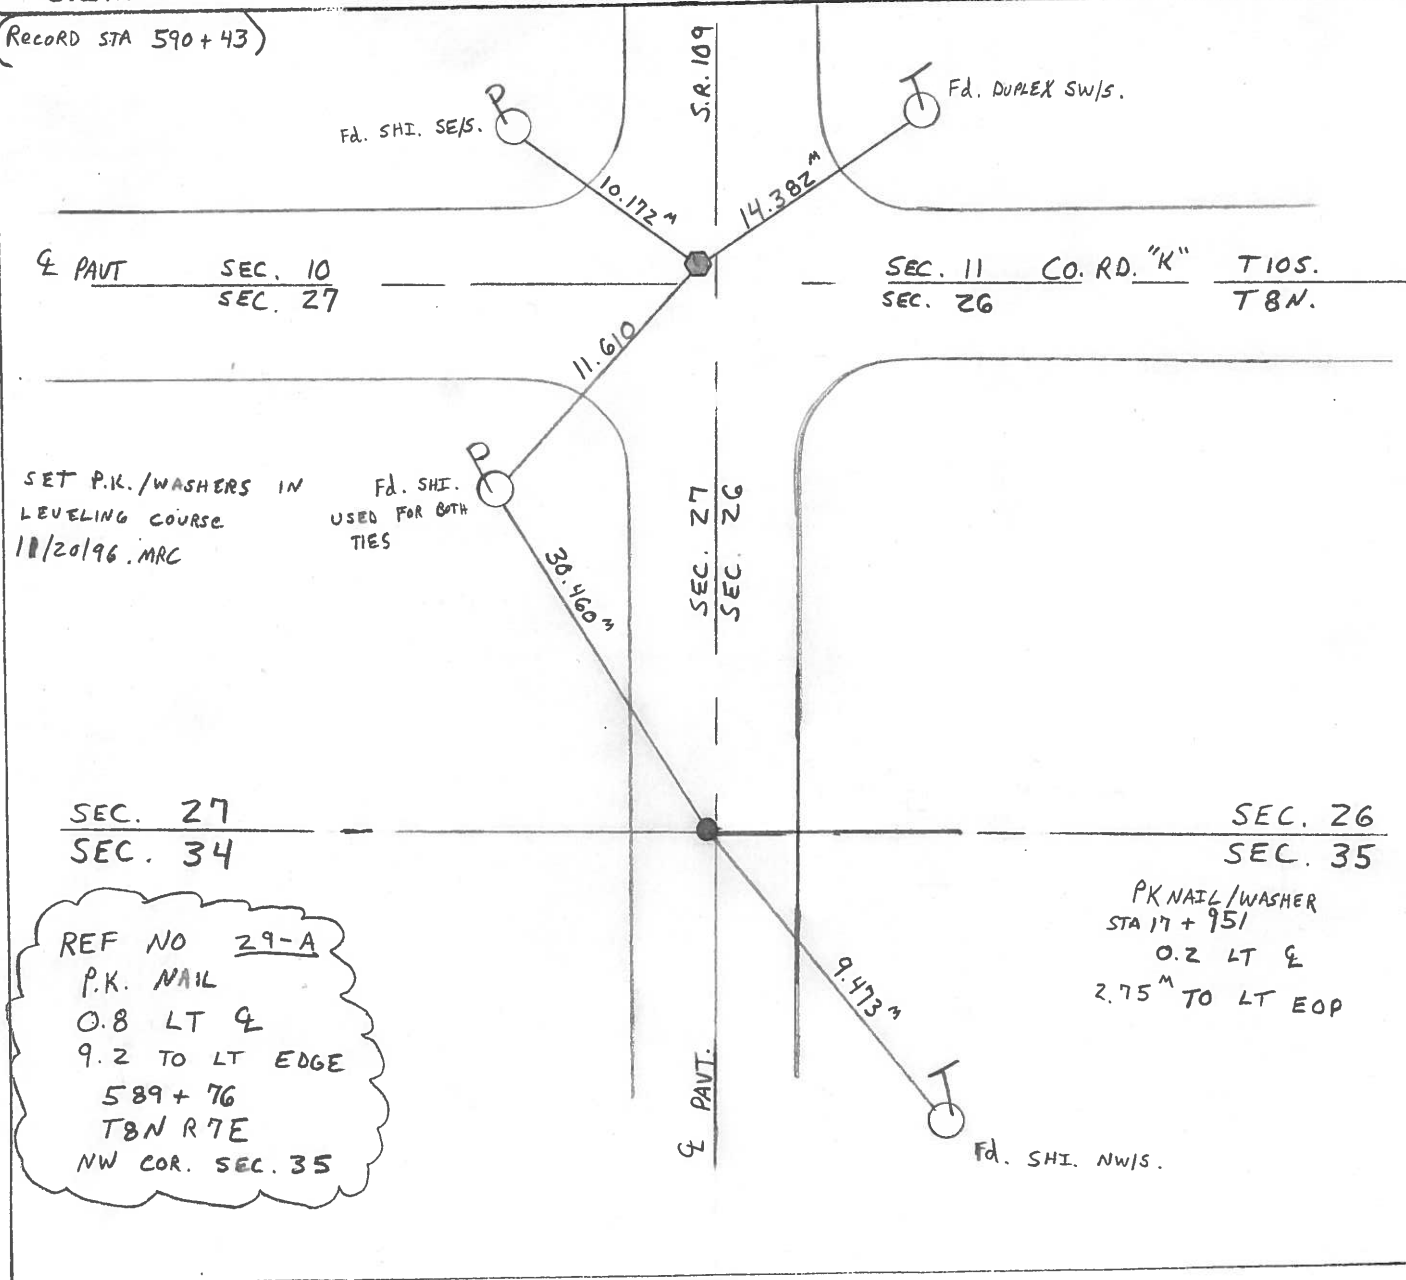 (RECORD STA 590+43)
S.R. 109
Fd. SHI. SE/S.
Fd. DUPLEX SW/S.
10.172 M
14.382 M
℄ PAVT
SEC. 10
SEC. 27
SEC. 11
SEC. 26
CO. RD. "K"
T10S.
T8N.
11.610
SET P.K./WASHERS IN
LEVELING COURSE
11/20/96. MRC
Fd. SHI.
USED FOR BOTH
TIES
SEC. 27
SEC. 26
30.460 M
SEC. 27
SEC. 34
SEC. 26
SEC. 35
PK NAIL/WASHER
STA 17+951
0.2 LT ℄
2.75 M TO LT EOP
REF NO 29-A
P.K. NAIL
0.8 LT ℄
9.2 TO LT EDGE
589+76
T8N R7E
NW COR. SEC. 35
9.473 M
℄ PAVT.
Fd. SHI. NW/S.